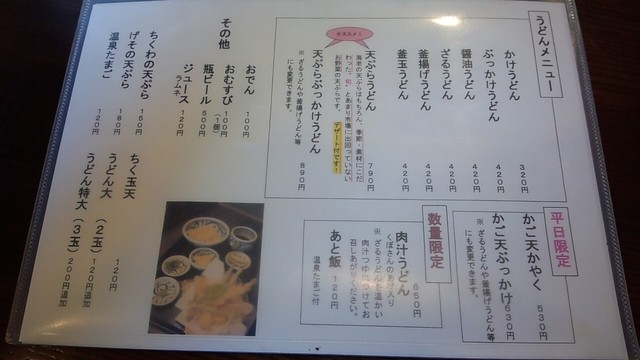 うどんメニュー
かけうどん 320円
ぶっかけうどん 420円
醤油うどん 420円
ざるうどん 420円
釜揚げうどん 420円
釜玉うどん 420円
オススメ！
天ぷらうどん 790円
海老の天ぷらはもちろん、季節・素材にこだ
わった"旬"とあまり市場に出回っていない
お野菜の天ぷらです。デザート付です！
天ぷらぶっかけうどん 890円
※ざるうどんや釜揚げうどん等
にも変更できます。
平日限定
かご天かやく 530円
かご天ぶっかけ 630円
※ざるうどんや釜揚げうどん等
にも変更できます。
数量限定
肉汁うどん 650円
くぼさんの
※ざるうどんを温かい
肉汁つゆにつけてお
召しあがりください。
あと飯 120円
温泉たまご付
その他
おでん 100円
おむすび（1個） 100円
瓶ビール 500円
ジュース 120円
ラムネ
ちくわの天ぷら 150円
げその天ぷら 180円
温泉たまご 120円
ちく玉天 120円
うどん大（2玉） 120円追加
うどん特大（3玉） 200円追加